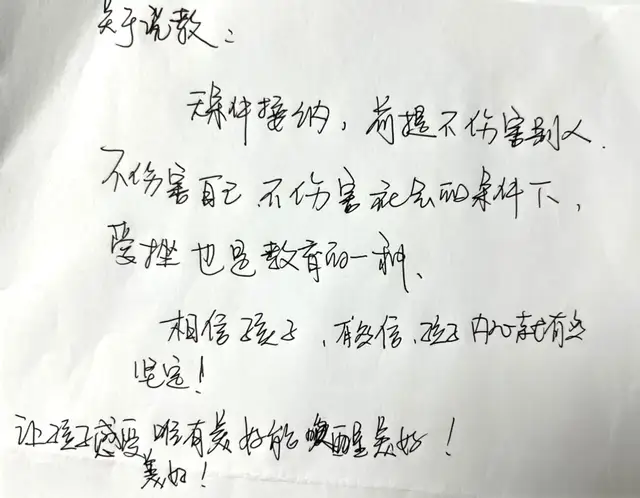 关于说教：
无条件接纳，前提不伤害别人.
不伤害自己 不伤害社会的条件下，
受挫也是教育的一种、
相信孩子，有多信，孩子内心就有多
坚定！
让孩子感受，唯有美好能唤醒美好！
美好！